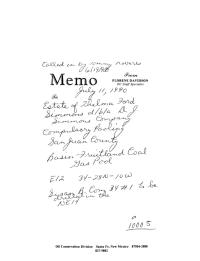 Called in by Tommy Roberts
6/19/90
Memo
From
FLORENE DAVIDSON
OC Staff Specialist
July 11, 1990
To
Estate of Thelma Ford
Simmons d/b/a D. J.
Simmons Company
Compulsory Pooling
San Juan County
Basin-Fruitland Coal
Gas Pool
E/2 34-28N-10W
Susan B. Com 34 #1 to be
drilled in the
NE/4
10005
Oil Conservation Division Santa Fe, New Mexico 87504-2088
827-5802